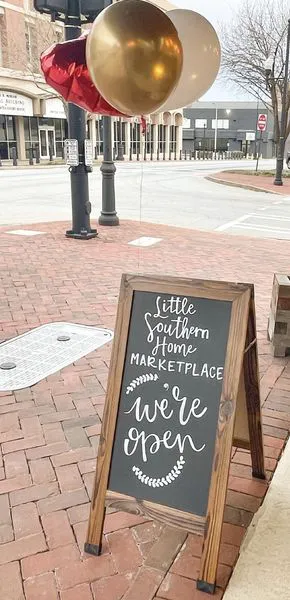 Little
Southern
Home
MARKETPLACE
we're
open